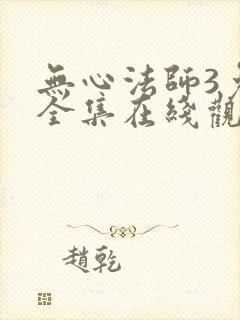 無心法師3
全集在綫觀
趙乾